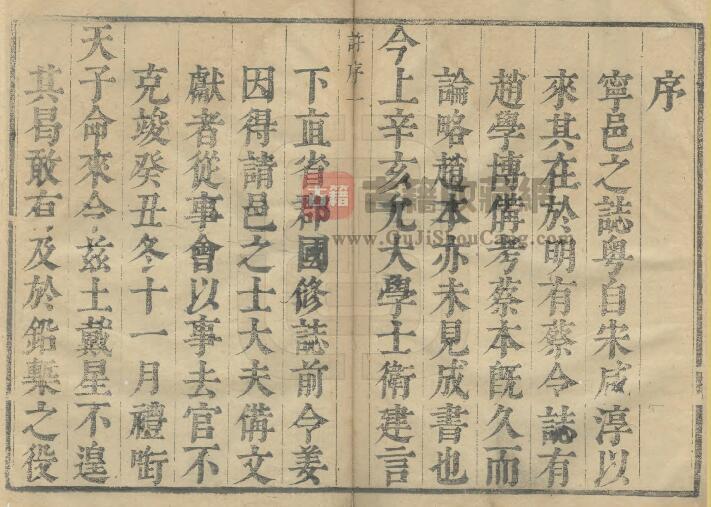 序
寧邑之誌粵自宋咸淳以
來其在於明有蔡令誌有
趙學博備考蔡本旣久而
論略趙本亦未見成書也
今上辛亥允大學士衛建言
許序一
下直省郡國修誌前令姜
因得請邑之士大夫備文
獻者從事會以事去官不
克竣癸丑冬十一月禮銜
天子命來令茲土戴星不遑
其曷敢有及於鉛槧之役
古籍
古籍收藏網
www.GuJiShouCang.com